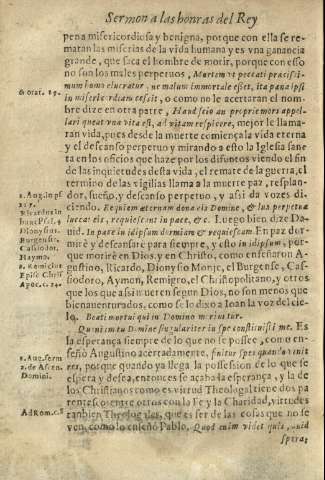 Sermon a las honras del Rey
pena misericordiosa y benigna, porque con ella se re-
matan las miserias de la vida humana y es vna ganancia
grande, que saca el hombre de morir, porque con esso
no son los males perpetuos, Mortem et peccati
minum homo lucratur, ne malum immortale esset, ita pœna ipsi
in misericordiam cessit, o como no le acertaran el nom-
bre dize en otra parte, Haud scio an proprie mors appel-
lari queat vna vita est, ad vitam respicere, mejor le llama-
ran vida, pues desde la muerte comiença la vida eterna
y el descanso perpetuo y mirando a esto la Iglesia san-
ta en los oficios que haze por los difuntos viendo el fin
de las inquietudes desta vida, el remate de la guerra, el
termino de las vigilias llama a la muerte paz, resplan-
dor, sueño, y descanso perpetuo, y assi da vozes di-
ciendo. Requiem æternam dona eis Domine, & lux perpetua
luceat eis, requiescant in pace, &c. Luego bien dize Da-
uid. In pace in idipsum dormiam & requiescam. En paz dor-
mirè y descansarè para siempre, y esto in idipsum, por-
que morirè en Dios, y en Christo, como enseñaron Au-
gustino, Ricardo, Dionysio Monje, el Burgense, Cas-
siodoro, Aymon, Remigio, el Christopolitano, y otros
que los que assi mueren segun Dios, no son menos que
bienauenturados, como se lo dixo a Ioan la voz del cie-
lo. Beati mortui qui in Domino moriuntur.
Quoniam tu Domine singulariter in spe constituisti me. Es
la esperança siempre de lo que no se possee, como en-
señò Augustino acertadamente, finitur spes quando
res, porque quando ya llega la possession de lo que se
espera y desea, entonces se acaba la esperança, y la de
los Christianos como es virtud Theologal tiene dos pa
rentescos entre otros con la Fe y la Charidad, virtudes
tambien Theologales, que es ser de las cosas que no se
ven, como lo enseñò Pablo, Quod enim videt quis, quid
sperat
orat. 19.
s. Aug. in ps
Ricardus in
Dionysius.
Burgense.
Cassiodor.
Haymo.
s. Remigius
Episc Christ
Apoc. c. 14.
s. Aug. serm
2. de Ascen.
Domini.
Ad Rom. c. 8